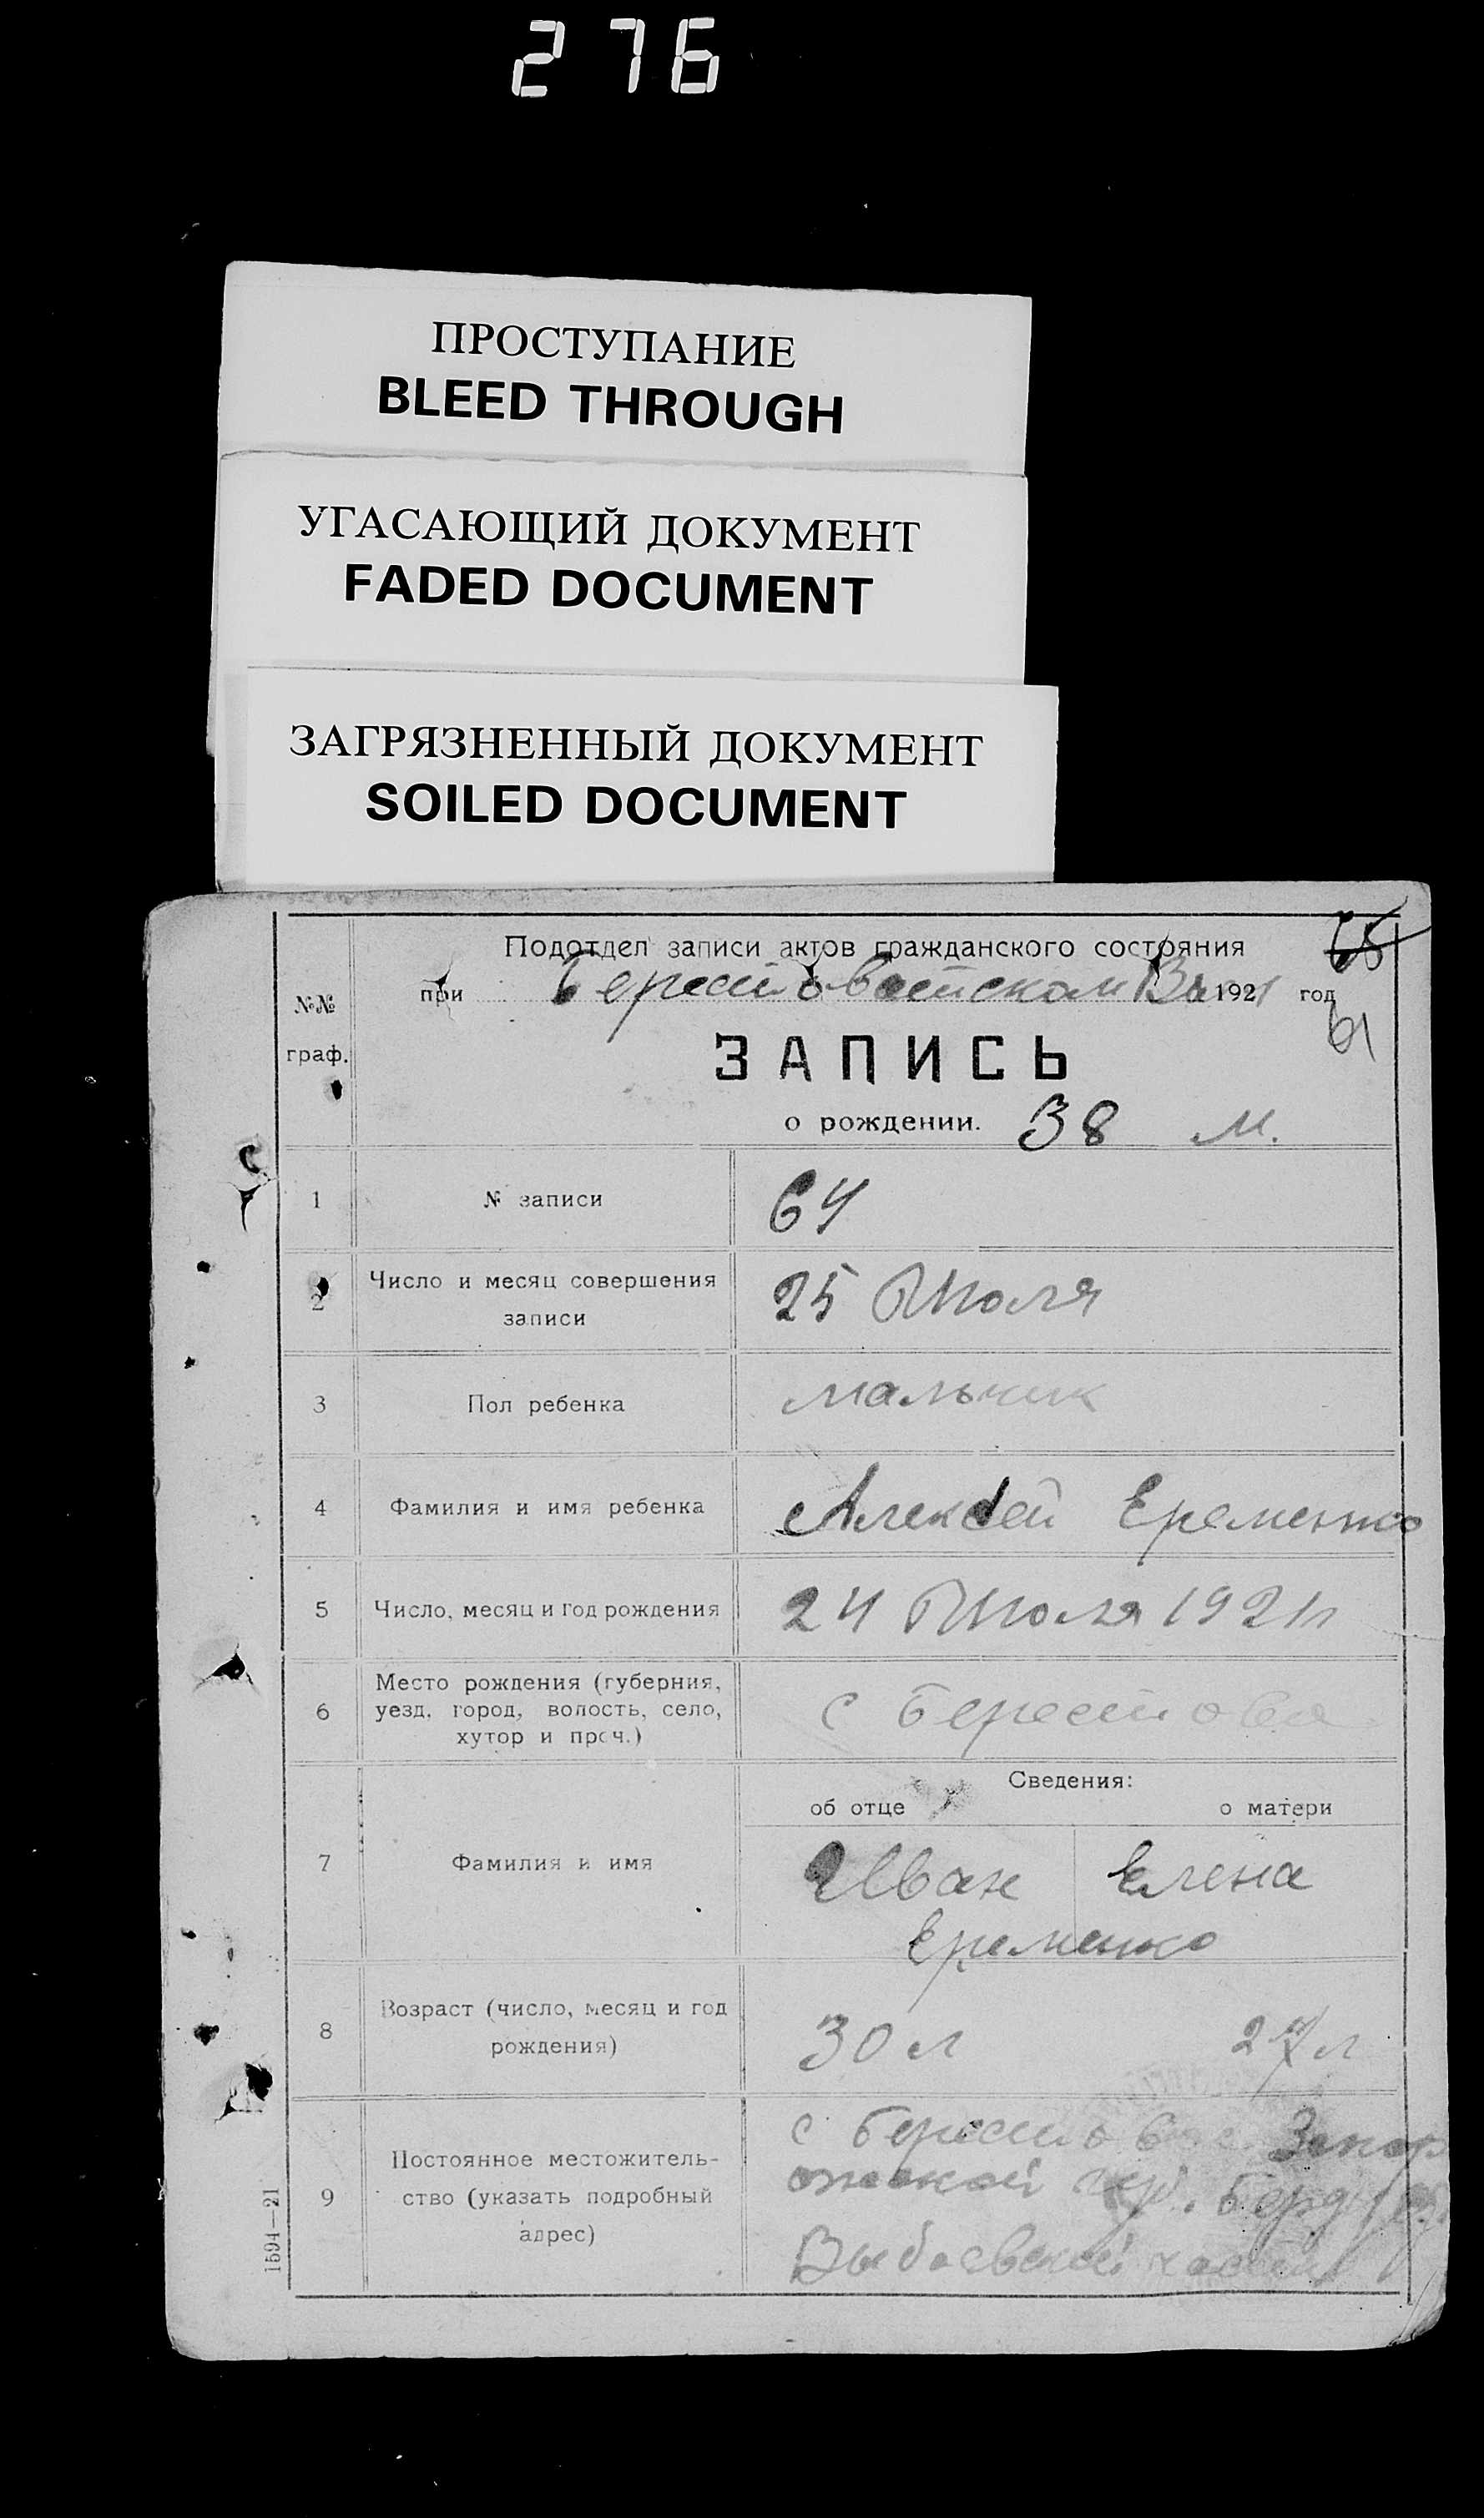 276
ПРОСТУПАНИЕ
BLEED THROUGH
УГАСАЮЩИЙ ДОКУМЕНТ
FADED DOCUMENT
ЗАГРЯЗНЕННЫЙ ДОКУМЕНТ
SOILED DOCUMENT
Подотдел записи актов гражданского состояния
65
при 1921 год
61
№№ граф.
ЗАПИСЬ
о рождении. 38 м.
1 № записи 64
2 Число и месяц совершения
записи
25 Июля
3 Пол ребенка мальчик
4 Фамилия и имя ребенка Алексей Еременко
5 Число, месяц и год рождения 24 Июля 1921 г
6 Место рождения (губерния,
уезд, город, волость, село,
хутор и проч.)
с Берестова
Сведения:
об отце о матери
7 Фамилия и имя Иван Елена
Еременко
8 Возраст (число, месяц и год
рождения)
30 л л
9 Постоянное местожитель-
ство (указать подробный
адрес)
с Запор
ожской губ. Берд
1594—21